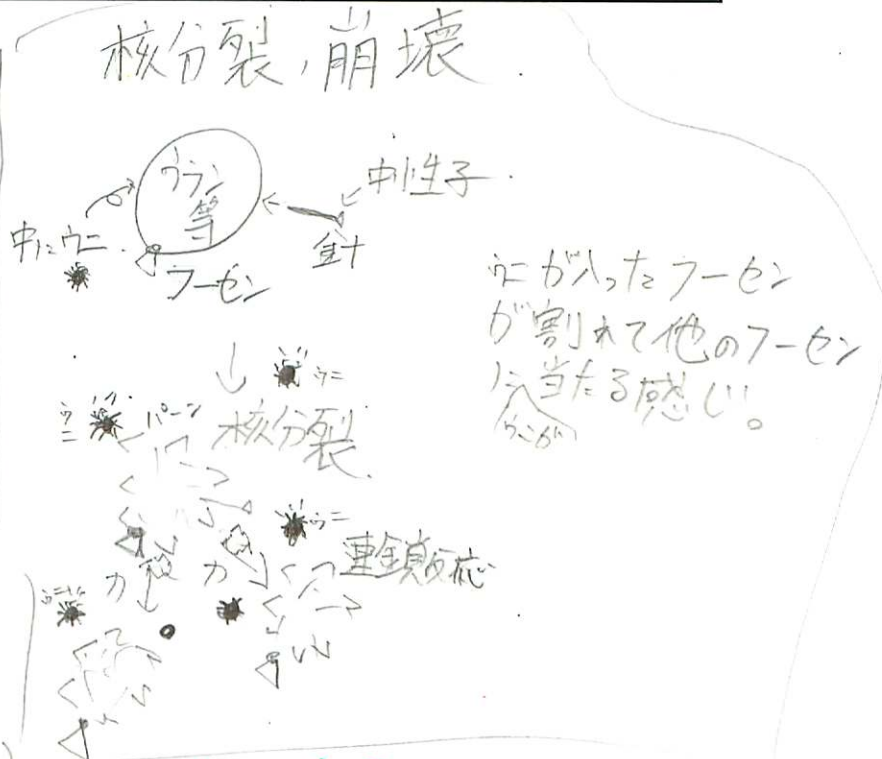 核分裂,崩壊
ウラン
等
中性子
中にウニ
針
フーセン
ウニが入ったフーセン
が割れて他のフーセン
に当たる感じ。
(ウニが)
ウニ
ウニ
パーン
核分裂
ウニ
連鎖反応
力
力
ウニ